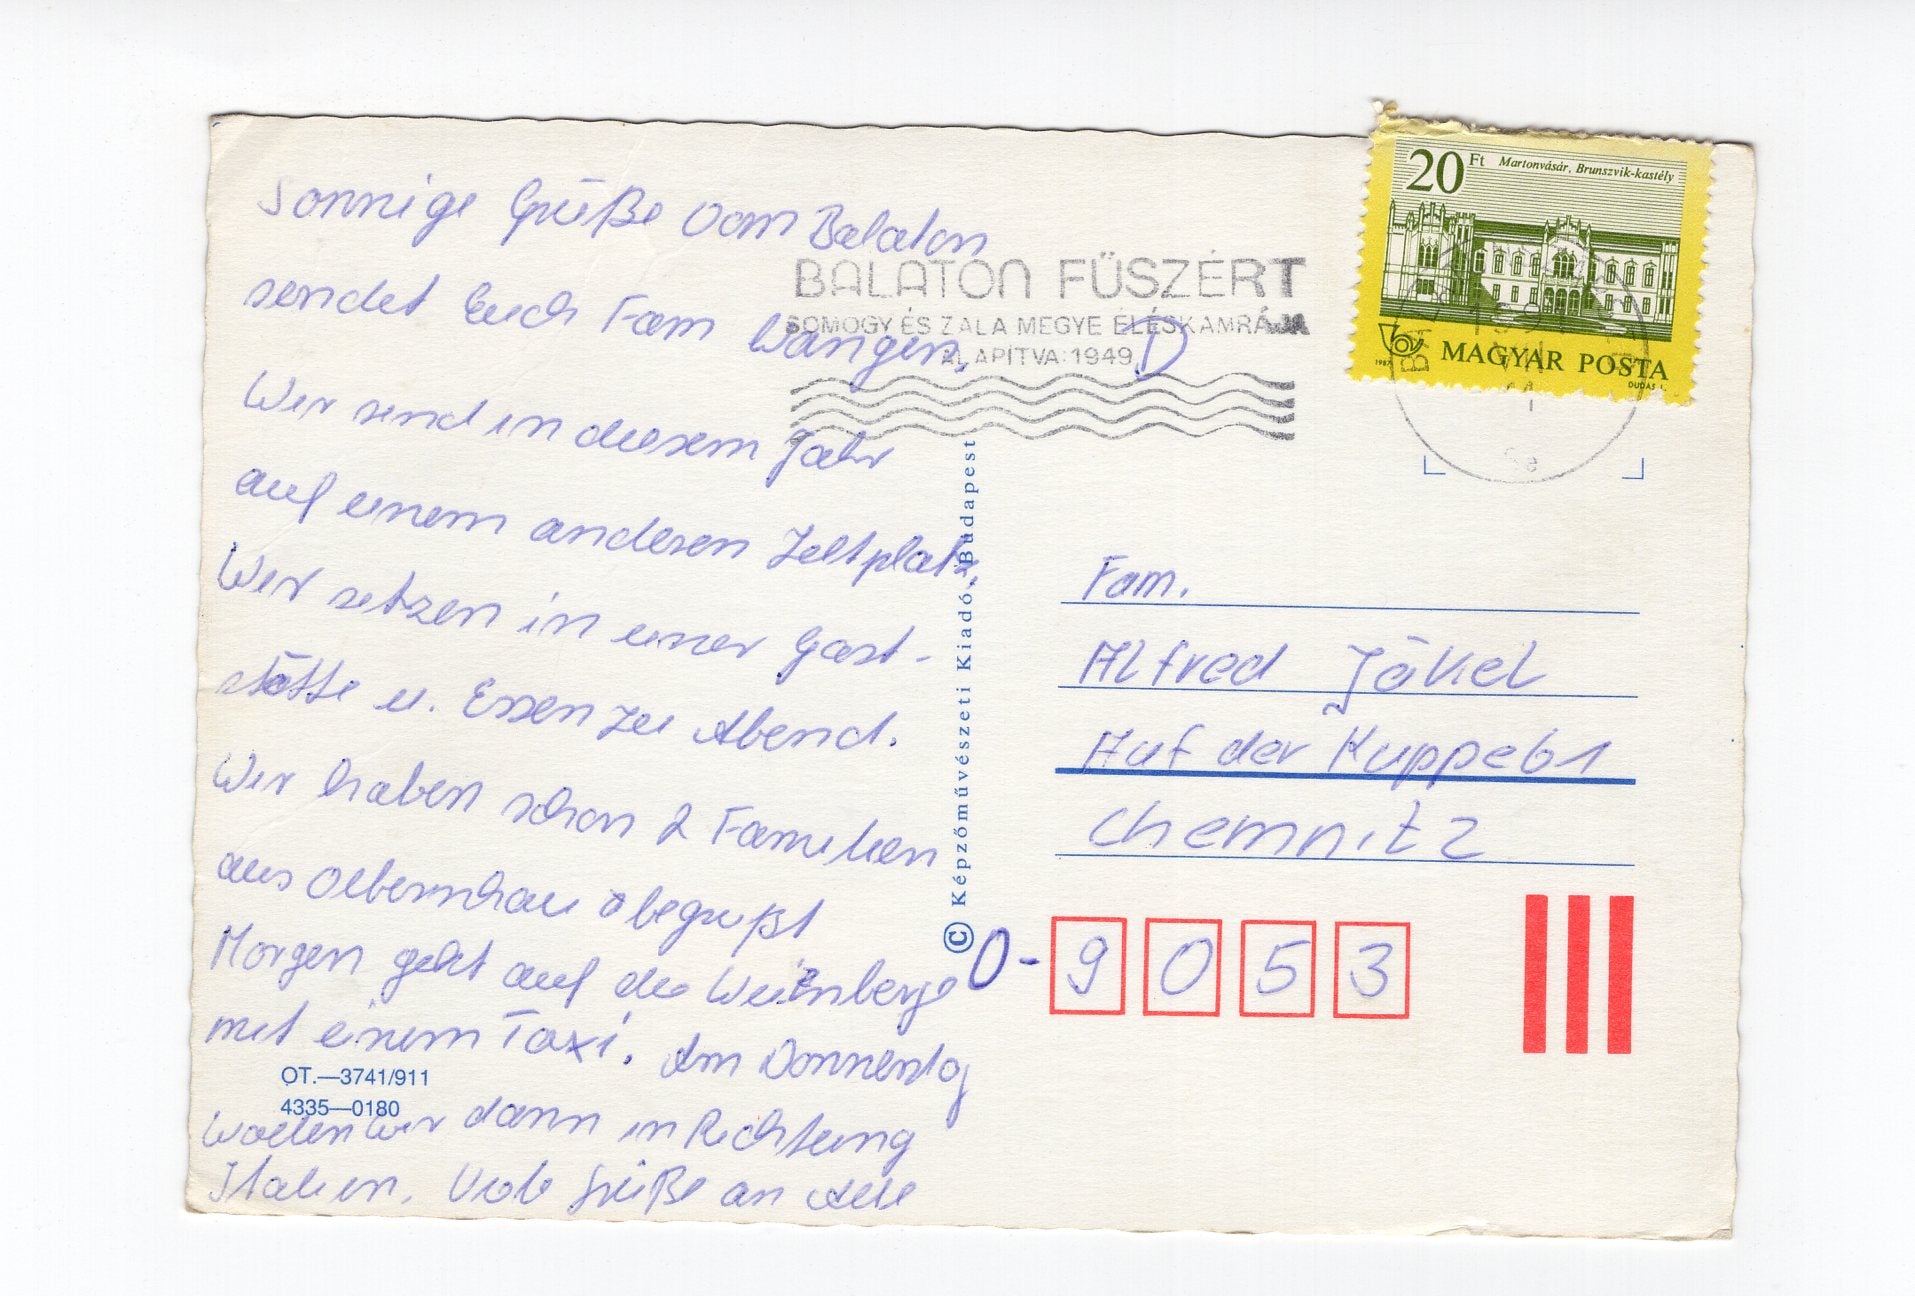 Sonnige Grüße vom Balaton
sendet Euch Fam Wangen.
Wir sind in diesem Jahr
auf einem anderen Zeltplatz.
Wir sitzen in einer Gast-
stätte u. Essen zu Abend.
Wir haben schon 2 Familien
aus Olbernhau begrüßt
Morgen geht auf die Weinberge
mit einem Taxi. Am Donnerstag
wollen wir dann in Richtung
Italien. Viele Grüße an alle
OT.—3741/911
4335—0180
© Képzőművészeti Kiadó, Budapest
BALATON FŰSZÉRT
SOMOGY ÉS ZALA MEGYE ÉLÉSKAMRÁJA
ALAPÍTVA: 1949
D
20 Ft Martonvásár, Brunszvik-kastély
MAGYAR POSTA
DUDÁS L.
Fam.
Alfred Jäkel
Auf der Kuppe 61
Chemnitz
O-9053